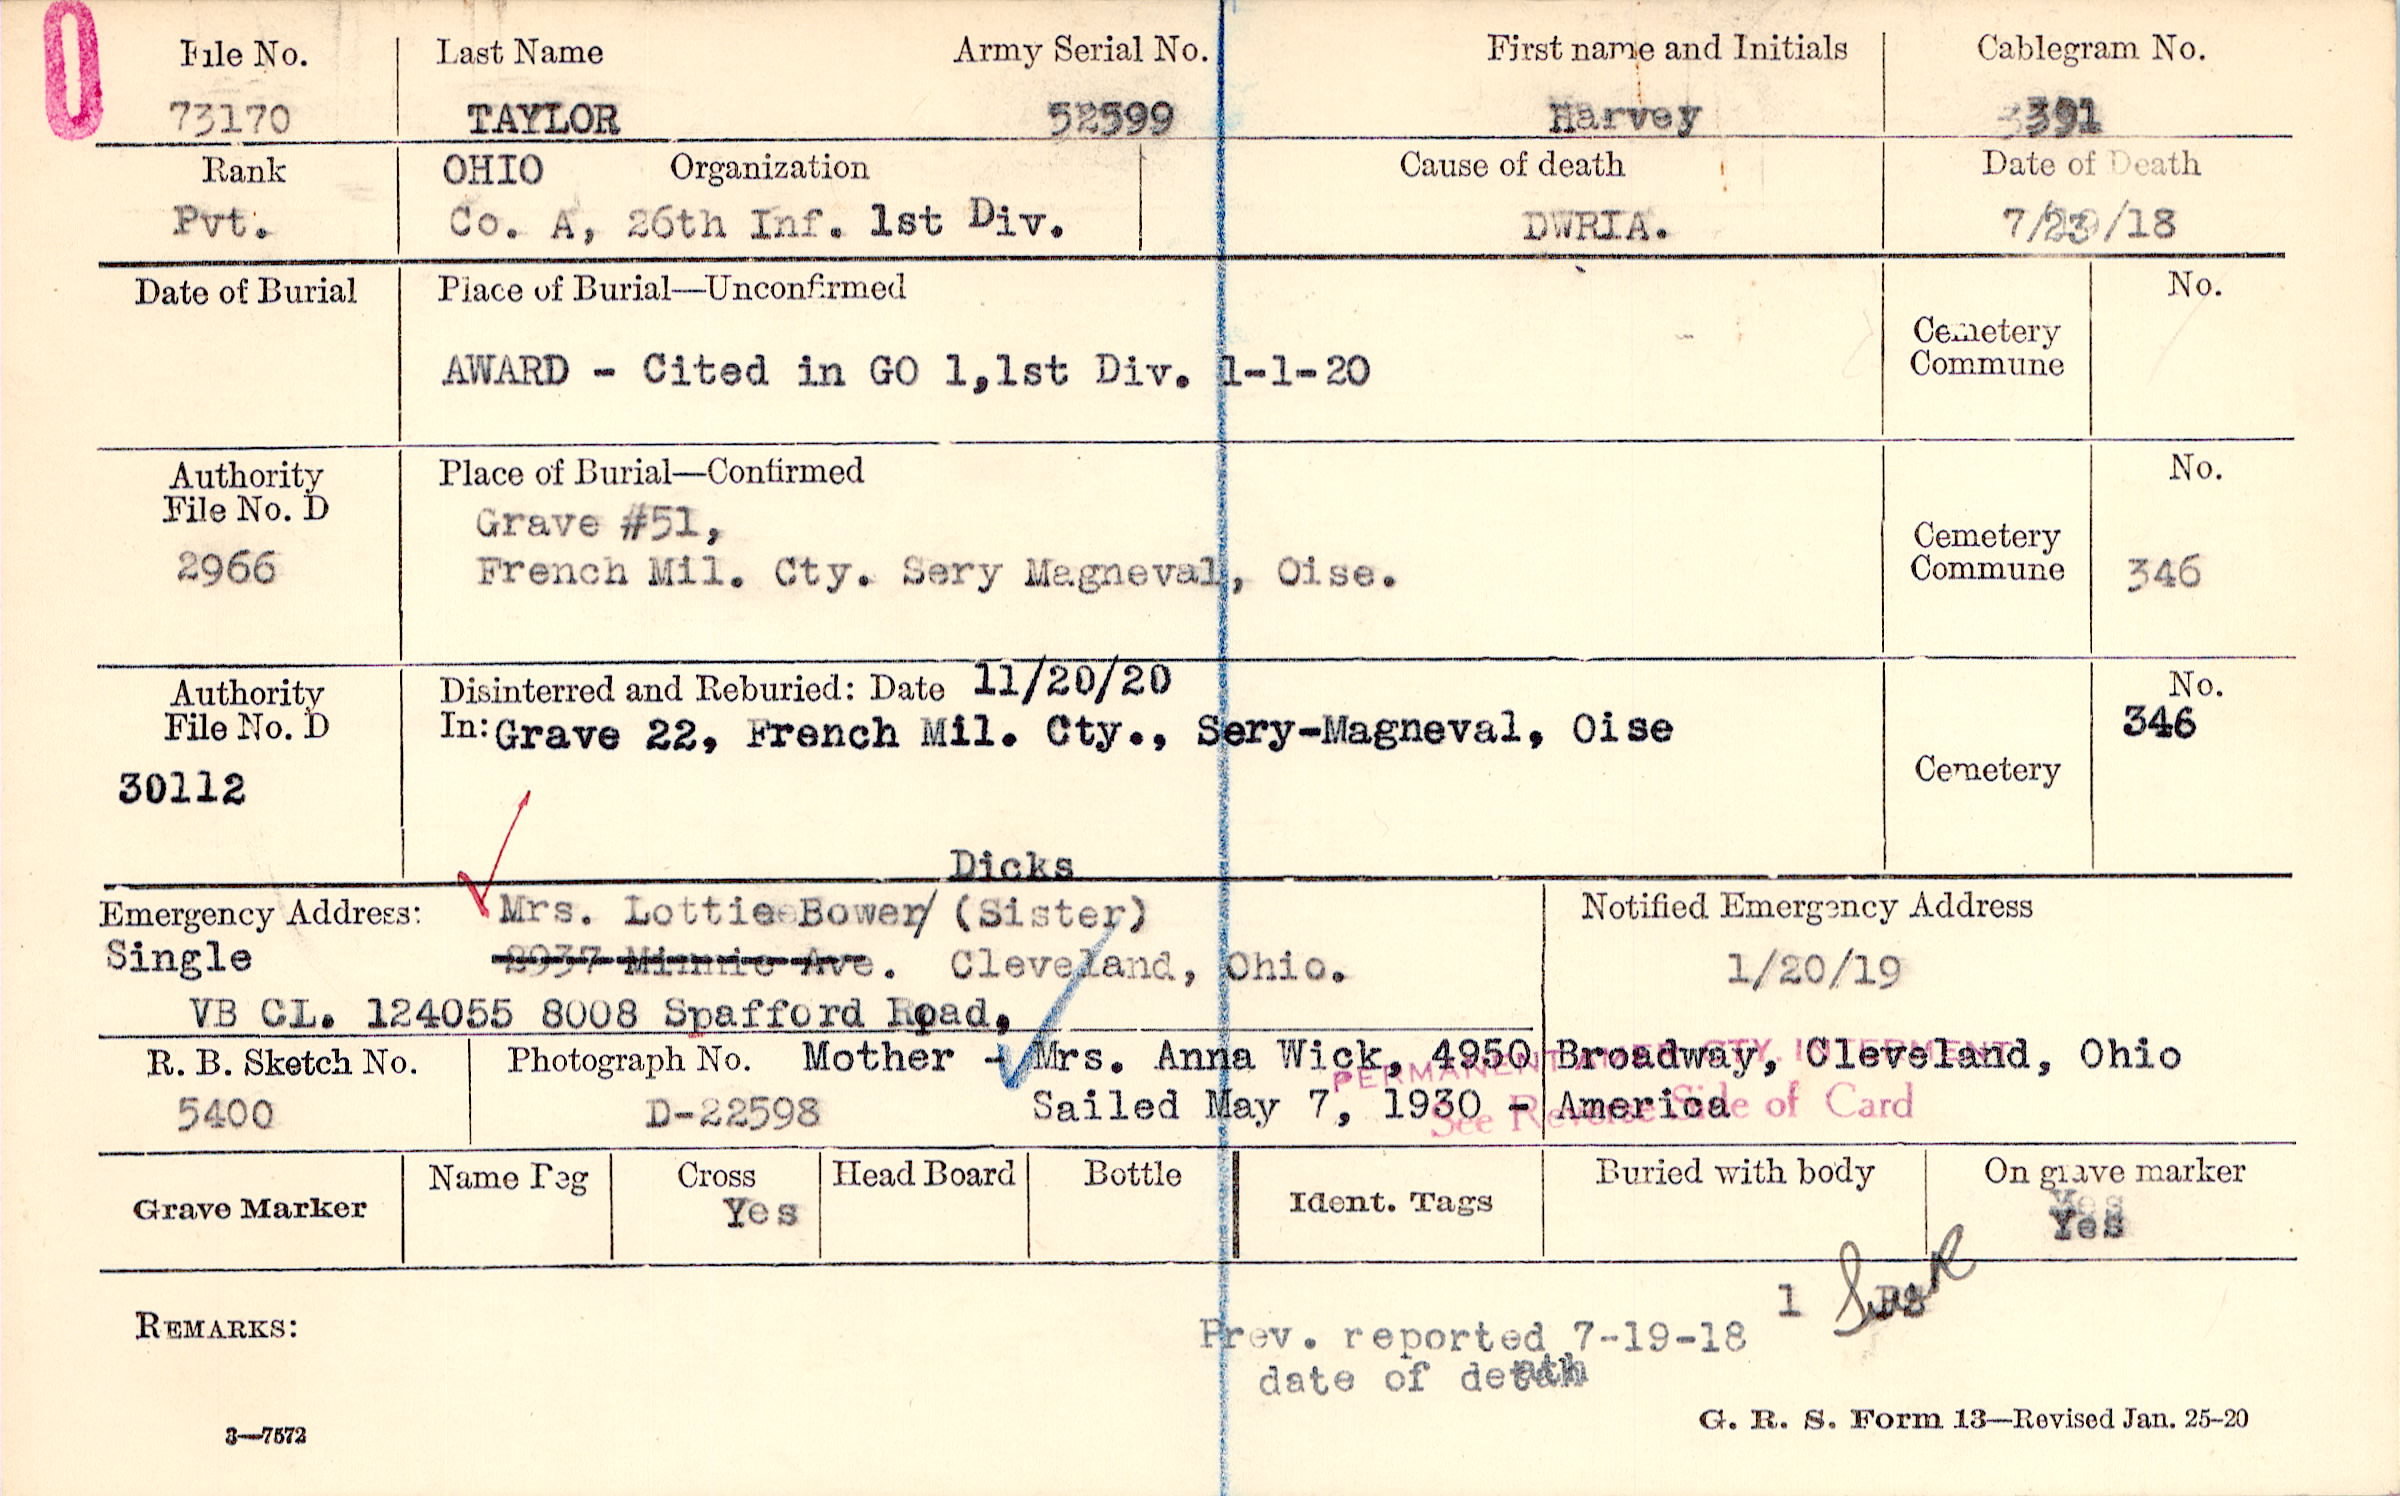 File No. Last Name Army Serial No. First name and Initials Cablegram No.
73170 TAYLOR 52599 Harvey 391
Rank OHIO Organization Cause of death Date of Death
Pvt. Co. A, 26th Inf. 1st Div. DWRIA. 7/23/18
Date of Burial Place of Burial—Unconfirmed No.
Cemetery
Commune
AWARD - Cited in GO 1,1st Div. 1-1-20
Authority Place of Burial—Confirmed No.
File No. D Grave #51,
Cemetery
2966 French Mil. Cty. Sery Magneval, Oise. Commune 346
Authority Disinterred and Reburied: Date 11/20/20 No.
File No. D In: Grave 22, French Mil. Cty., Sery-Magneval, Oise 346
30112 Cemetery
Dicks
Emergency Address: Mrs. Lottie Bower/ (Sister) Notified Emergency Address
Single 2937 Minnie Ave. Cleveland, Ohio. 1/20/19
VB CL. 124055 8008 Spafford Road,
R. B. Sketch No. Photograph No. Mother - Mrs. Anna Wick, 4950 Broadway, Cleveland, Ohio
PERMANENT CTY. INTERMENT
5400 D-22598 Sailed May 7, 1930 - America
See Reverse Side of Card
Grave Marker Name Peg Cross Head Board Bottle Ident. Tags Buried with body On grave marker
Yes Yes
Yes
1
REMARKS: Prev. reported 7-19-18
date of death
3—7572 G. R. S. Form 13—Revised Jan. 25-20